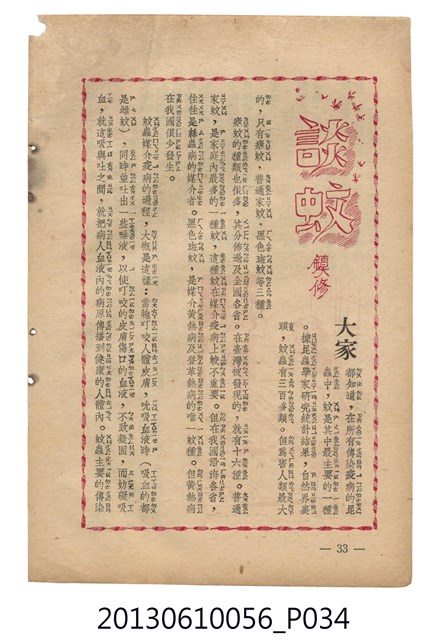 談蚊
鎮修
大家
都知道，在所有傳染疫病的昆
蟲中，蚊是其中最主要的一種
。據昆蟲學家研究統計結果，自然界裏
頭，蚊蟲有三百多類。但為害人類最大
的，只有瘧蚊，普通家蚊，黑色斑蚊等三種。
瘧蚊的種類也很多，其分佈遍及全國各省。在臺灣被發現的，就有十六種。普通
家蚊，是家庭內最多的一種，這種蚊在媒介疫病上較不重要。但在我國沿海各省，
往往是絲蟲病的媒介者。黑色斑蚊，是媒介黃熱病及登革熱病的唯一蚊種。但黃熱病
在我國很少發生。
蚊蟲媒介疫病的過程，大概是這樣：當牠叮咬人體皮膚，吮吸血液時（吸血的都
是雌蚊），同時並吐出一些唾液，以使叮咬的皮膚傷口的血液，不致凝固，而妨礙吸
血，就這吸與吐之間，就把病人血液內的病原傳播到健康的人體內。蚊蟲主要的傳染
— 33 —
20130610056_P034